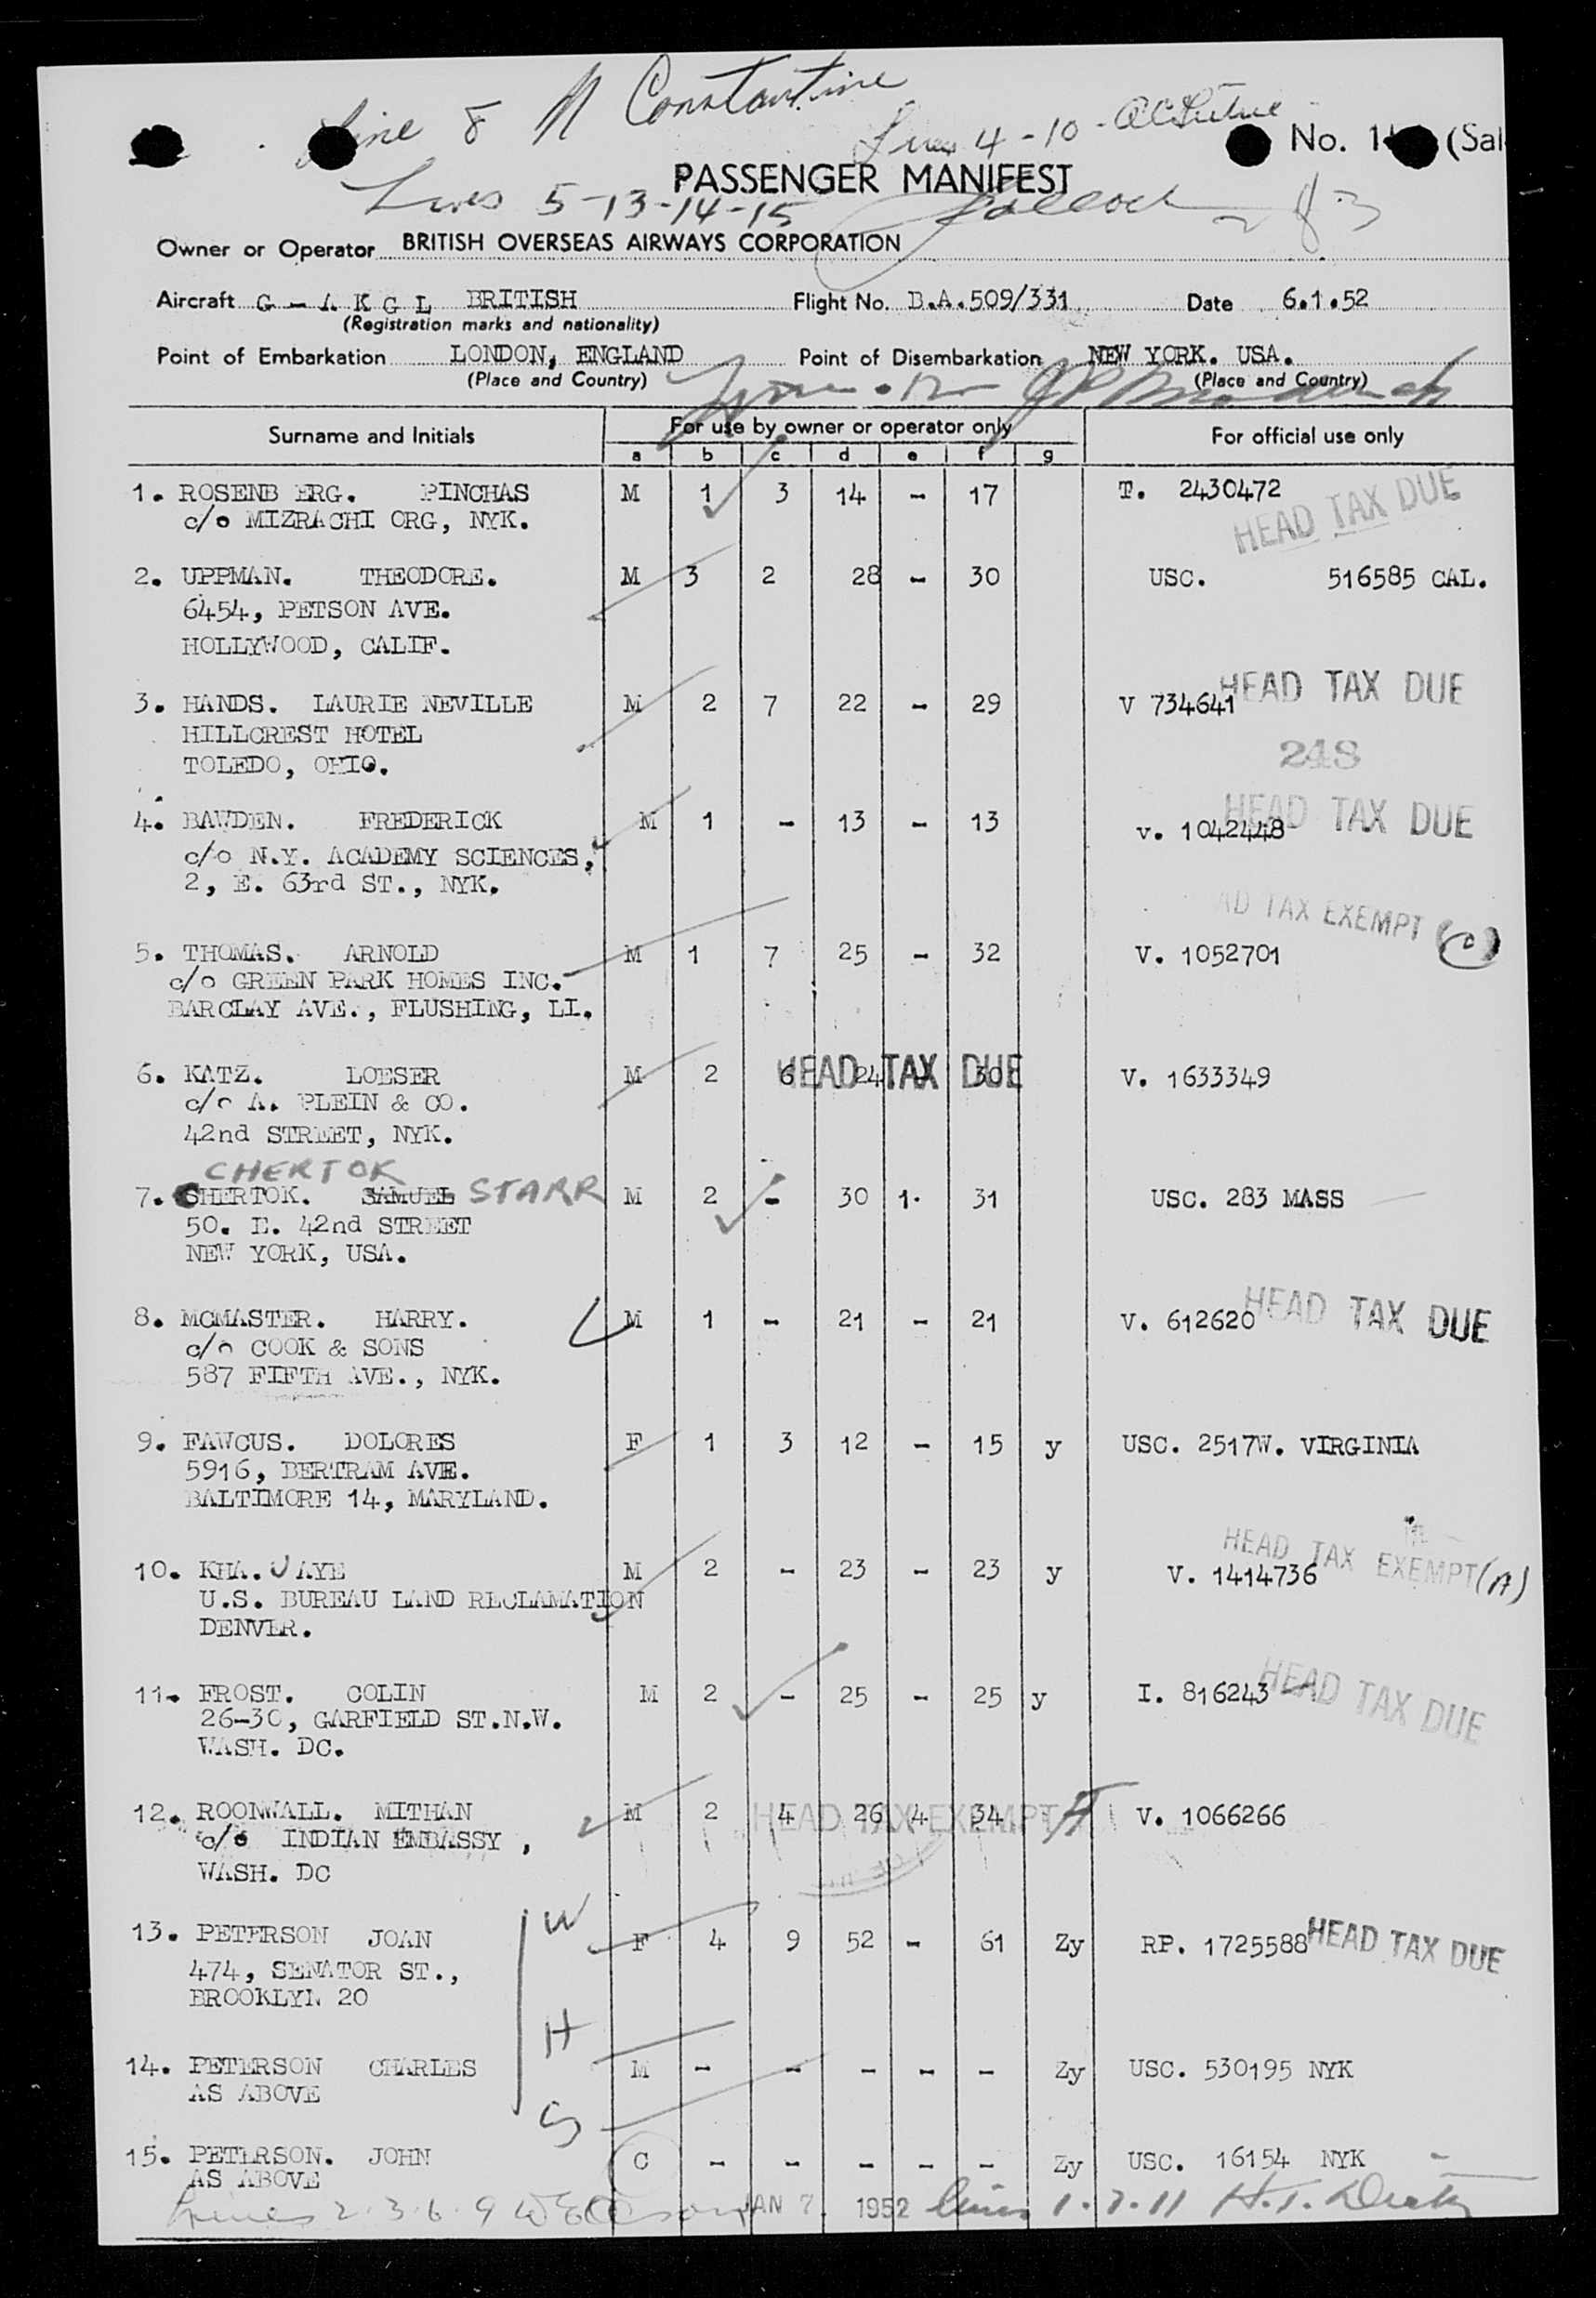 Line 8 N Constantine
Lines 4-10-
No. 1 (Sal
PASSENGER MANIFEST
Lines 5-13-14-15
83
Owner or Operator BRITISH OVERSEAS AIRWAYS CORPORATION
Aircraft G - A K G L BRITISH Flight No. B.A.509/331 Date 6.1.52
(Registration marks and nationality)
Point of Embarkation LONDON, ENGLAND Point of Disembarkation NEW YORK. USA.
(Place and Country) (Place and Country)
Surname and Initials For use by owner or operator only For official use only
a b c d e f g
1. ROSENB ERG. PINCHAS M 1 3 14 - 17 T. 2430472 HEAD TAX DUE
c/o MIZRACHI ORG, NYK.
2. UPPMAN. THEODORE. M 3 2 28 - 30 USC. 516585 CAL.
6454, PETSON AVE.
HOLLYWOOD, CALIF.
3. HANDS. LAURIE NEVILLE M 2 7 22 - 29 V 734641 HEAD TAX DUE
HILLCREST HOTEL
248
TOLEDO, OHIO.
4. BAWDEN. FREDERICK M 1 - 13 - 13 v. 1042448 HEAD TAX DUE
c/o N.Y. ACADEMY SCIENCES,
2, E. 63rd ST., NYK.
AD TAX EXEMPT (C)
5. THOMAS. ARNOLD M 1 7 25 - 32 V. 1052701
c/o GREEN PARK HOMES INC.
BARCLAY AVE., FLUSHING, LI.
6. KATZ. LOESER M 2 6 24 - 30 HEAD TAX DUE V. 1633349
c/o A. PLEIN & CO.
42nd STREET, NYK.
CHERTOK
7. SHERTOK. SAMUEL STARR M 2 - 30 1. 31 USC. 283 MASS
50. E. 42nd STREET
NEW YORK, USA.
8. MCMASTER. HARRY. M 1 - 21 - 21 V. 612620 HEAD TAX DUE
c/o COOK & SONS
587 FIFTH AVE., NYK.
9. FAWCUS. DOLORES F 1 3 12 - 15 y USC. 2517W. VIRGINIA
5916, BERTRAM AVE.
BALTIMORE 14, MARYLAND.
10. KHA. U AYE M 2 - 23 - 23 y V. 1414736 HEAD TAX EXEMPT (A)
U.S. BUREAU LAND RECLAMATION
DENVER.
11. FROST. COLIN M 2 - 25 - 25 y I. 816243 HEAD TAX DUE
26-30, GARFIELD ST.N.W.
WASH. DC.
12. ROONWALL. MITHAN M 2 4 26 4 34 HEAD TAX EXEMPT A V. 1066266
c/o INDIAN EMBASSY ,
WASH. DC
W
13. PETERSON JOAN F 4 9 52 - 61 Zy RP. 1725588 HEAD TAX DUE
474, SENATOR ST.,
BROOKLYN 20
H
14. PETERSON CHARLES M - - - - - Zy USC. 530195 NYK
AS ABOVE
S
15. PETERSON. JOHN C - - - - - Zy USC. 16154 NYK
AS ABOVE
Lines 2.3.6.9 JAN 7 1952 Lines 1.7.11